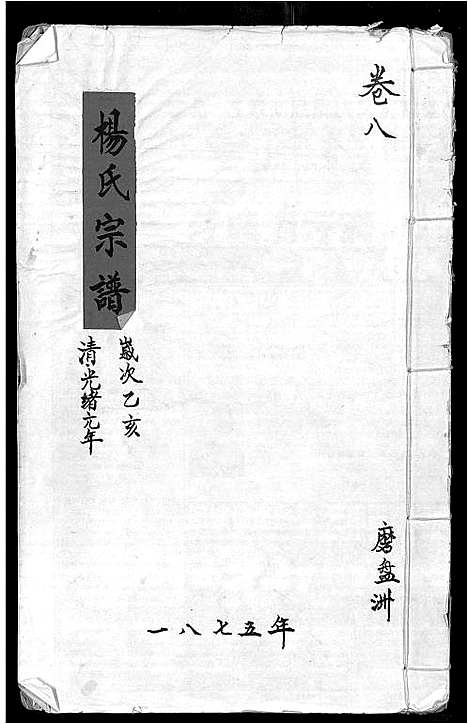 卷八
磨盘洲
楊氏宗譜
歲次乙亥
清光緒元年
一八七五年